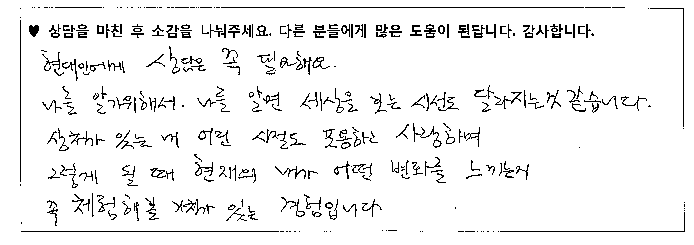 ♥ 상담을 마친 후 소감을 나눠주세요. 다른 분들에게 많은 도움이 된답니다. 감사합니다.
현대인에게 상담은 꼭 필요해요.
나를 알기위해서. 나를 알면 세상을 보는 시선도 달라지는것 같습니다.
상처가 있는 내 어린 시절도 포용하고 사랑하며
그렇게 될 때 현재의 내가 어떤 변화를 느끼는지
꼭 체험해볼 가치가 있는 경험입니다